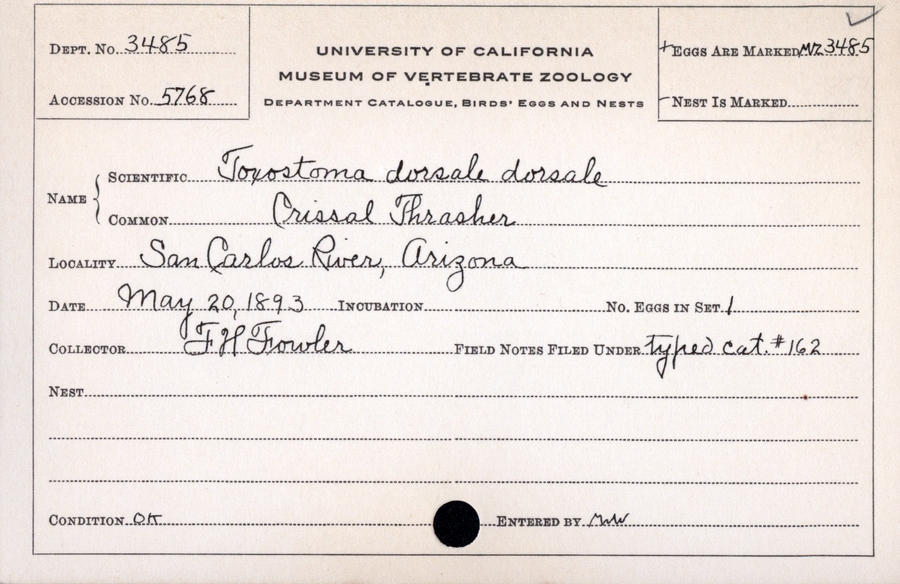 Dept. No. 3485
Accession No. 5768
UNIVERSITY OF CALIFORNIA
MUSEUM OF VERTEBRATE ZOOLOGY
Department Catalogue, Birds' Eggs and Nests
+ Eggs Are Marked MVZ 3485
- Nest Is Marked
Name { Scientific Toxostoma dorsale dorsale
Common Crissal Thrasher
Locality San Carlos River, Arizona
Date May 20, 1893 Incubation No. Eggs in Set 1
Collector F H Fowler Field Notes Filed Under typed cat. #162
Nest
Condition OK Entered by